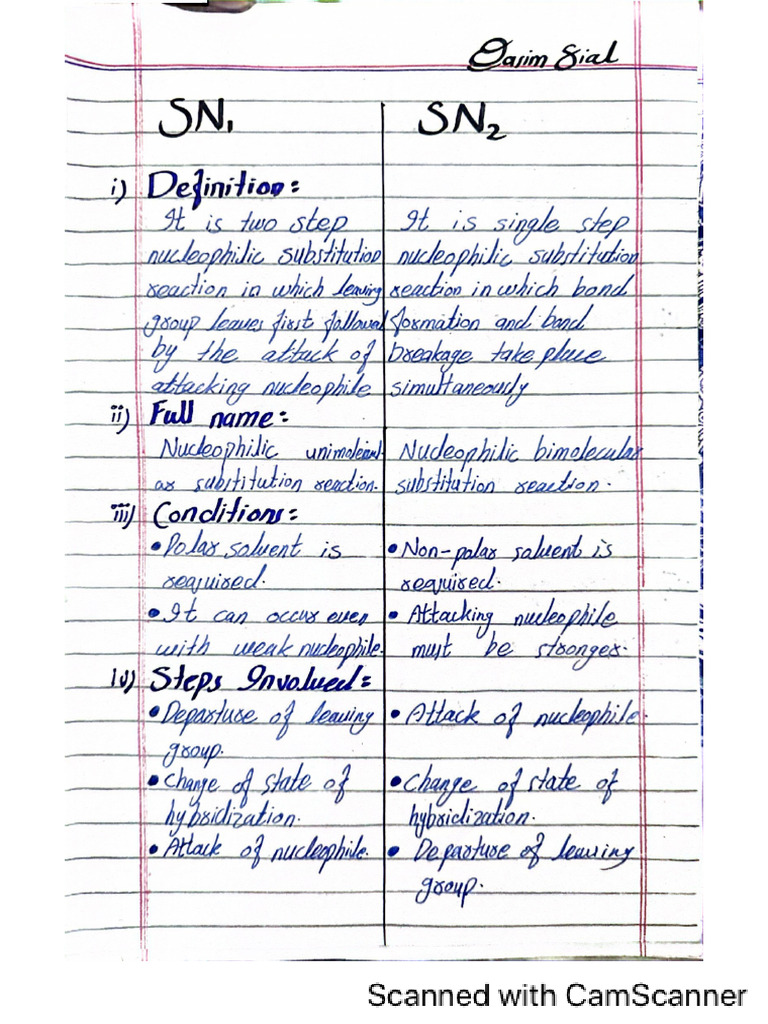 Qasim Sial
SN1
SN2
i) Definition:
It is two step
nucleophilic substitution
reaction in which leaving
group leaves first followed
by the attack of
attacking nucleophile
It is single step
nucleophilic substitution
reaction in which bond
formation and bond
breakage take place
simultaneously
ii) Full name:
Nucleophilic unimolecul-
ar substitution reaction.
Nucleophilic bimolecular
substitution reaction.
iii) Conditions:
• Polar solvent is
required.
• It can occur even
with weak nucleophile.
• Non-polar solvent is
required.
• Attacking nucleophile
must be stronger.
iv) Steps Involved:
• Departure of leaving
group.
• Change of state of
hybridization.
• Attack of nucleophile.
• Attack of nucleophile.
• Change of state of
hybridization.
• Departure of leaving
group.
Scanned with CamScanner